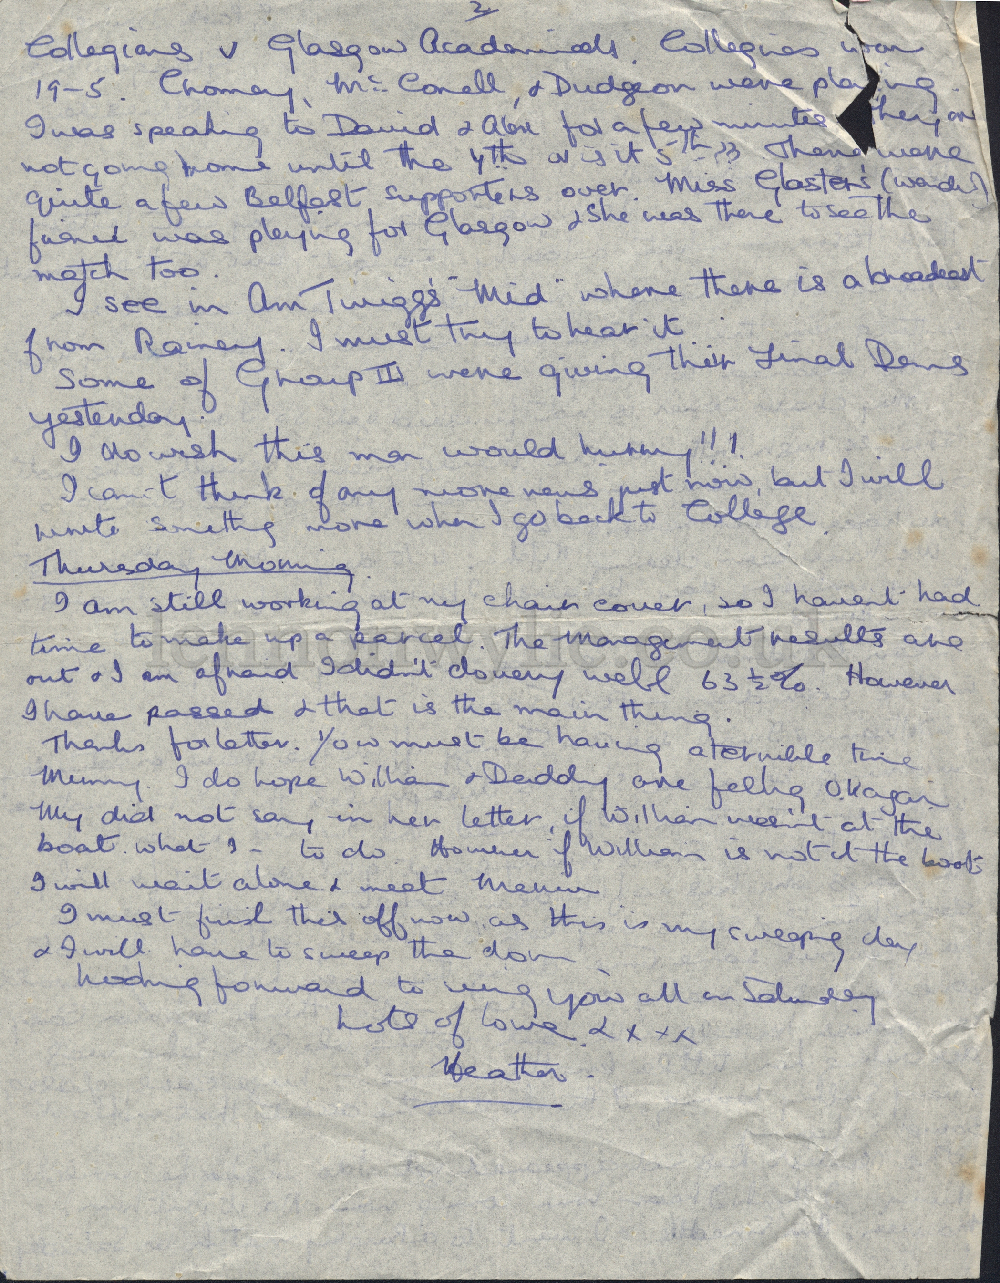 2
Collegians v Glasgow Academicals. Collegians won
19-5. Cromey, Mc Conell, & Dudgeon were playing.
I was speaking to David & for a few minutes They are
not going home until the 4th or is it 5th ?? There were
quite a few Belfast supporters over. Miss Glaster's
friend was playing for Glasgow & she was there to see the
match too.
I see in Am Twiggs "Mid" where there is a broadcast
from Rainey. I must try to hear it
Some of Group III were giving their Final Dems
yesterday.
I do wish this man would hurry!!!
I can't think of any more news just now, but I will
write something more when I go back to College
Thursday Morning.
I am still working at my chair cover, so I havent had
time to make up a parcel. The Management results are
out & I am afraid I didn't do very well 63½%. However
I have passed & that is the main thing.
Thanks for letter. You must be having a terrible time
Mummy. I do hope William & Daddy are feeling O.K again
My did not say in her letter, if William wasn't at the
boat what I - to do. However if William is not at the boat
I will wait alone & meet
I must finish this off now as this is my sweeping day
& I will have to sweep the
Looking forward to seeing you all on Saturday
Lots of love & x x x
Heather.
lennonwylie.co.uk